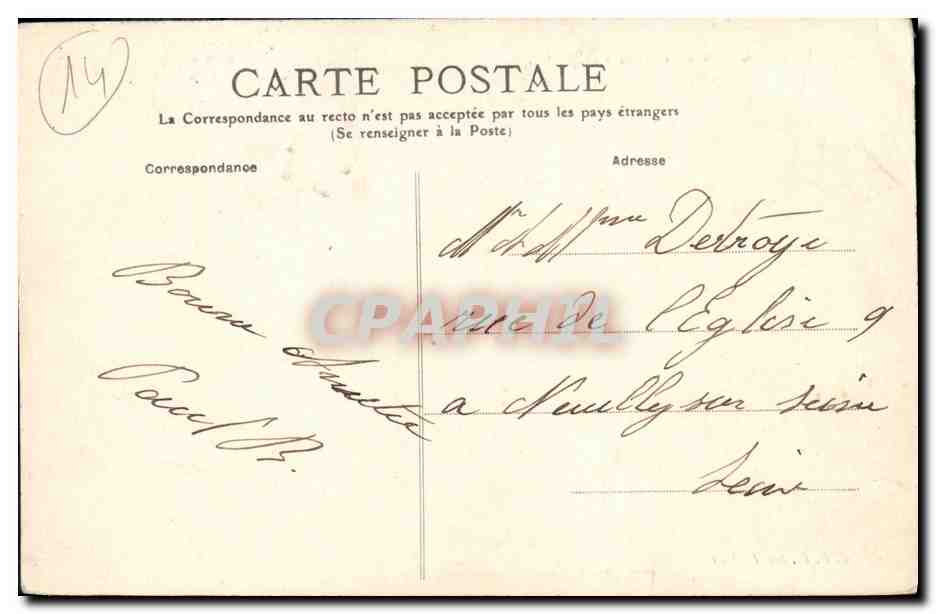 14
CARTE POSTALE
La Correspondance au recto n'est pas acceptée par tous les pays étrangers
(Se renseigner à la Poste)
Correspondance
Adresse
Bonne Amitié
Paul B.
Mr et Mme Detroye
rue de l'Eglise 9
a Neuilly sur Seine
Seine
CPAPHIL